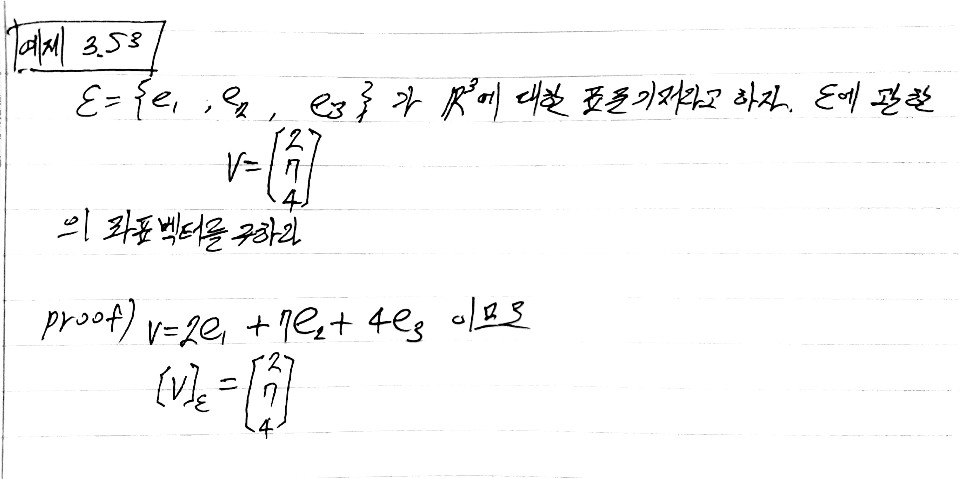 예제 3.53
ε = {e₁, e₂, e₃} 가 ℝ³에 대한 표준기저라고 하자. ε에 관한
v = [2 7 4]
의 좌표벡터를 구하라
proof) v = 2e₁ + 7e₂ + 4e₃ 이므로
[v]ε = [2 7 4]